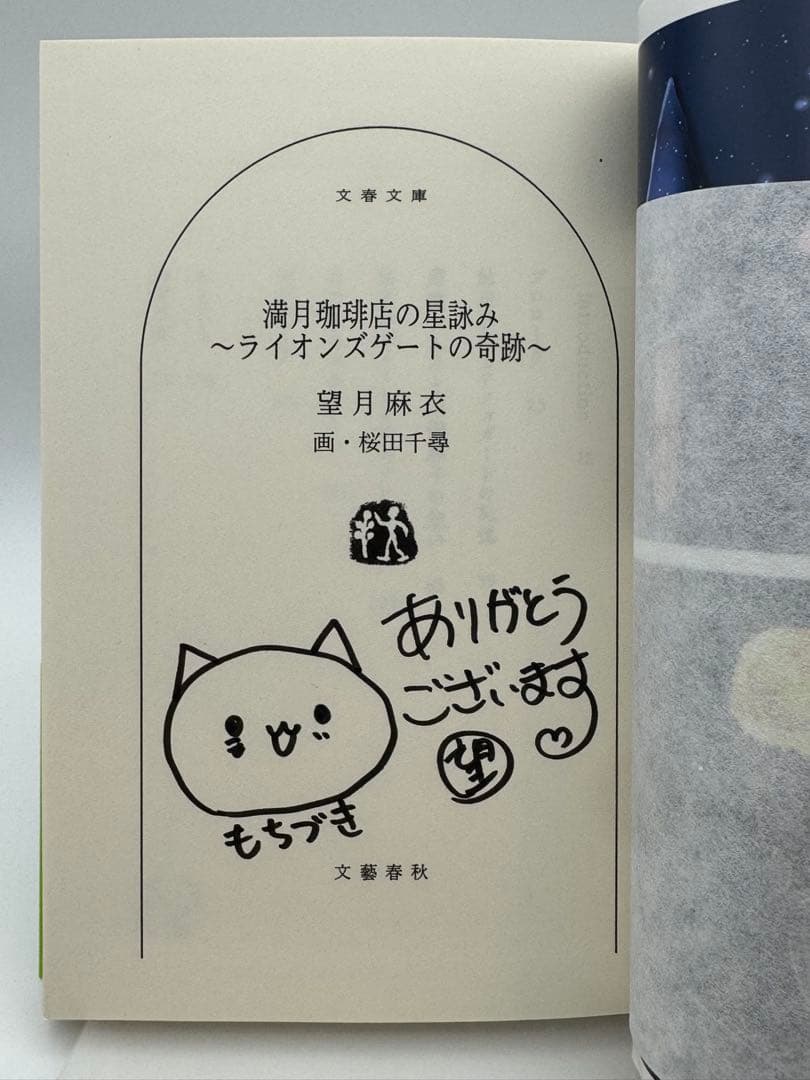 文春文庫
満月珈琲店の星詠み
～ライオンズゲートの奇跡～
望月麻衣
画・桜田千尋
ありがとう
ございます
望
もちづき
文藝春秋